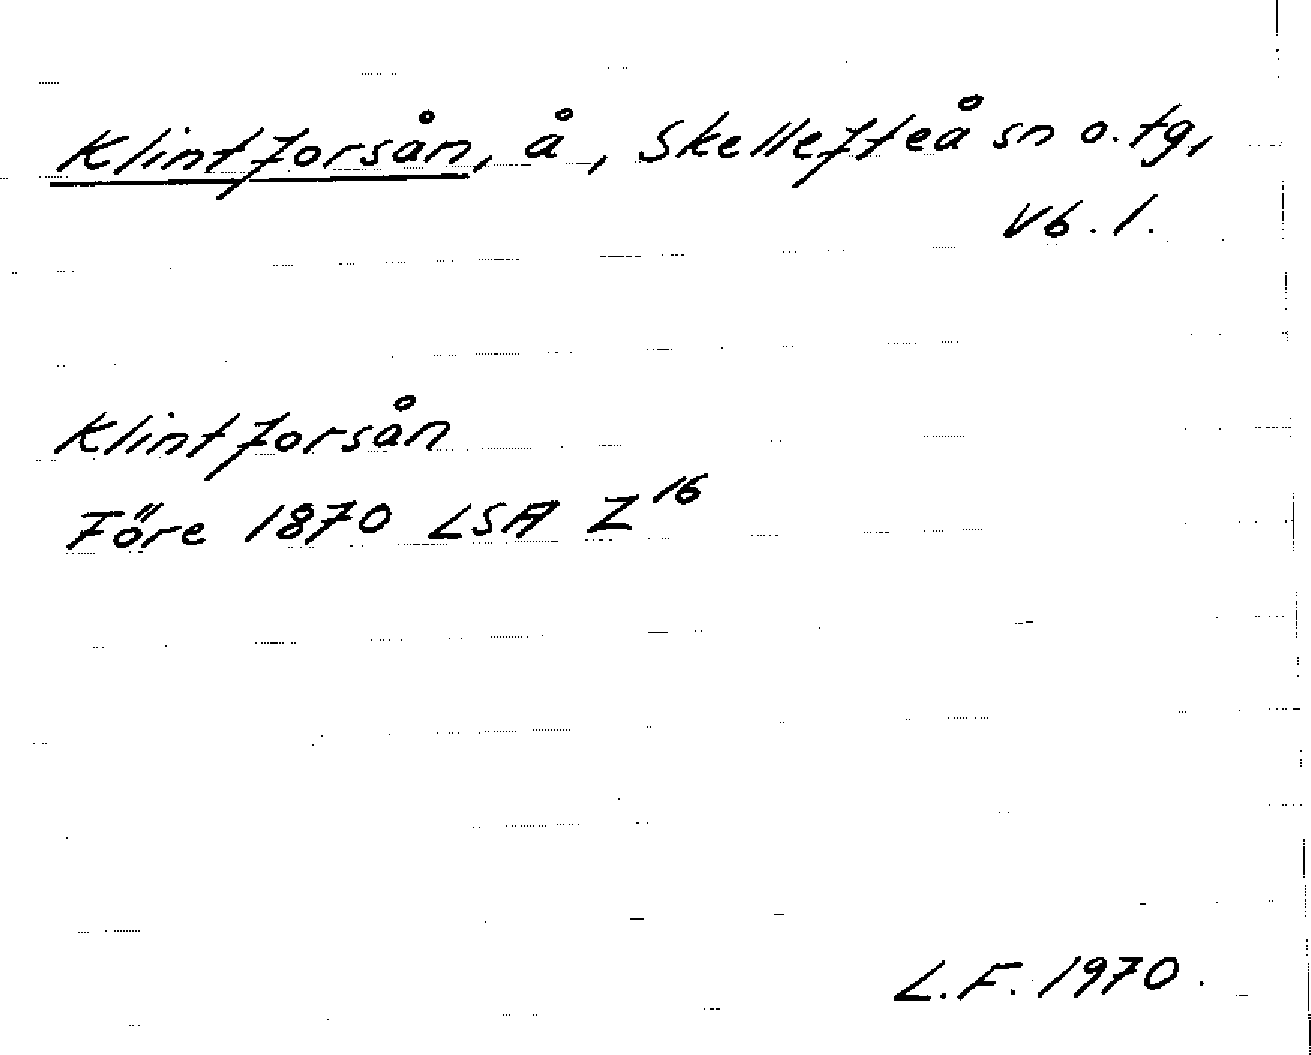 Klintforsån, å, Skellefteå sn o. tg,
Vb. l.
Klintforsån
Före 1870 LSA Z16
L.F. 1970.